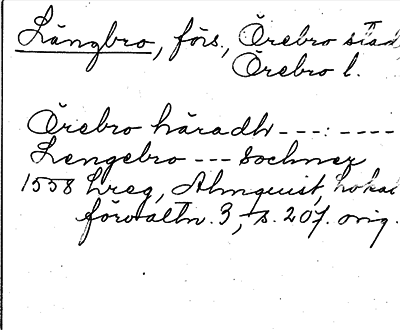 Längbro, förs., Örebro stad
Örebro l.
Örebro häradh ---:----
Lengebro --- Sochner
1558 Lreg, Almquist, Lokal
förvaltn. 3, s. 207. orig.